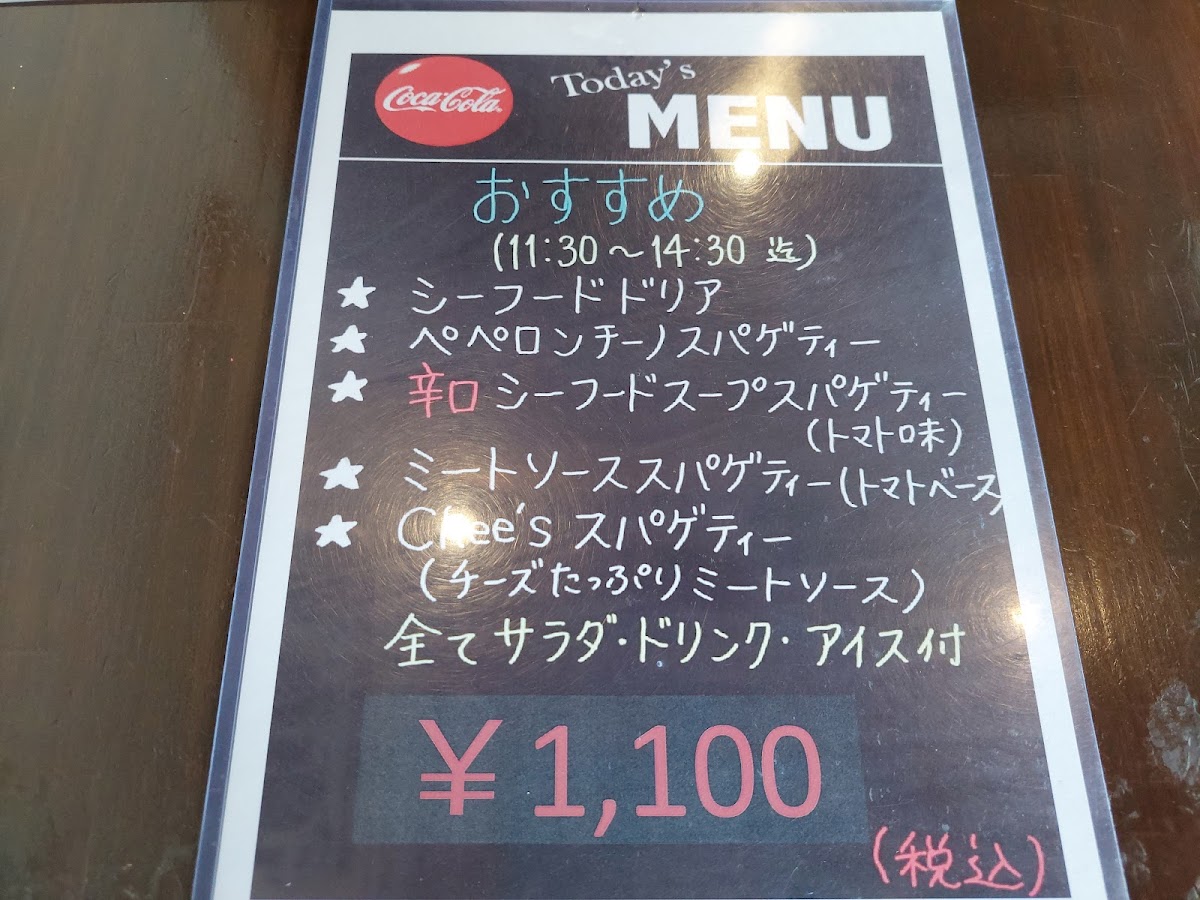 Coca-Cola
Today's
MENU
おすすめ
(11:30～14:30 迄)
★ シーフードドリア
★ ペペロンチーノスパゲティー
★ 辛口 シーフードスープスパゲティー
(トマト味)
★ ミートソーススパゲティー(トマトベース)
★ Chee's スパゲティー
(チーズたっぷりミートソース)
全てサラダ・ドリンク・アイス付
￥1,100
(税込)